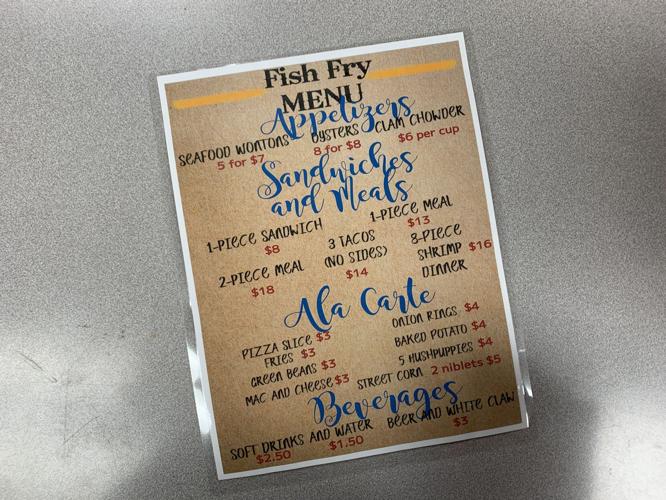 Fish Fry
MENU
Appetizers
SEAFOOD WONTONS OYSTERS CLAM CHOWDER
5 for $7 8 for $8 $6 per cup
Sandwiches
and Meals
1-PIECE SANDWICH 1-PIECE MEAL
$8 $13
3 TACOS
(NO SIDES)
$14
8-PIECE
SHRIMP $16
DINNER
2-PIECE MEAL
$18
Ala Carte
PIZZA SLICE $3
FRIES $3
GREEN BEANS $3
MAC AND CHEESE $3
ONION RINGS $4
BAKED POTATO $4
5 HUSHPUPPIES $4
STREET CORN 2 niblets $5
Beverages
SOFT DRINKS AND WATER BEER AND WHITE CLAW
$2.50 $1.50 $3